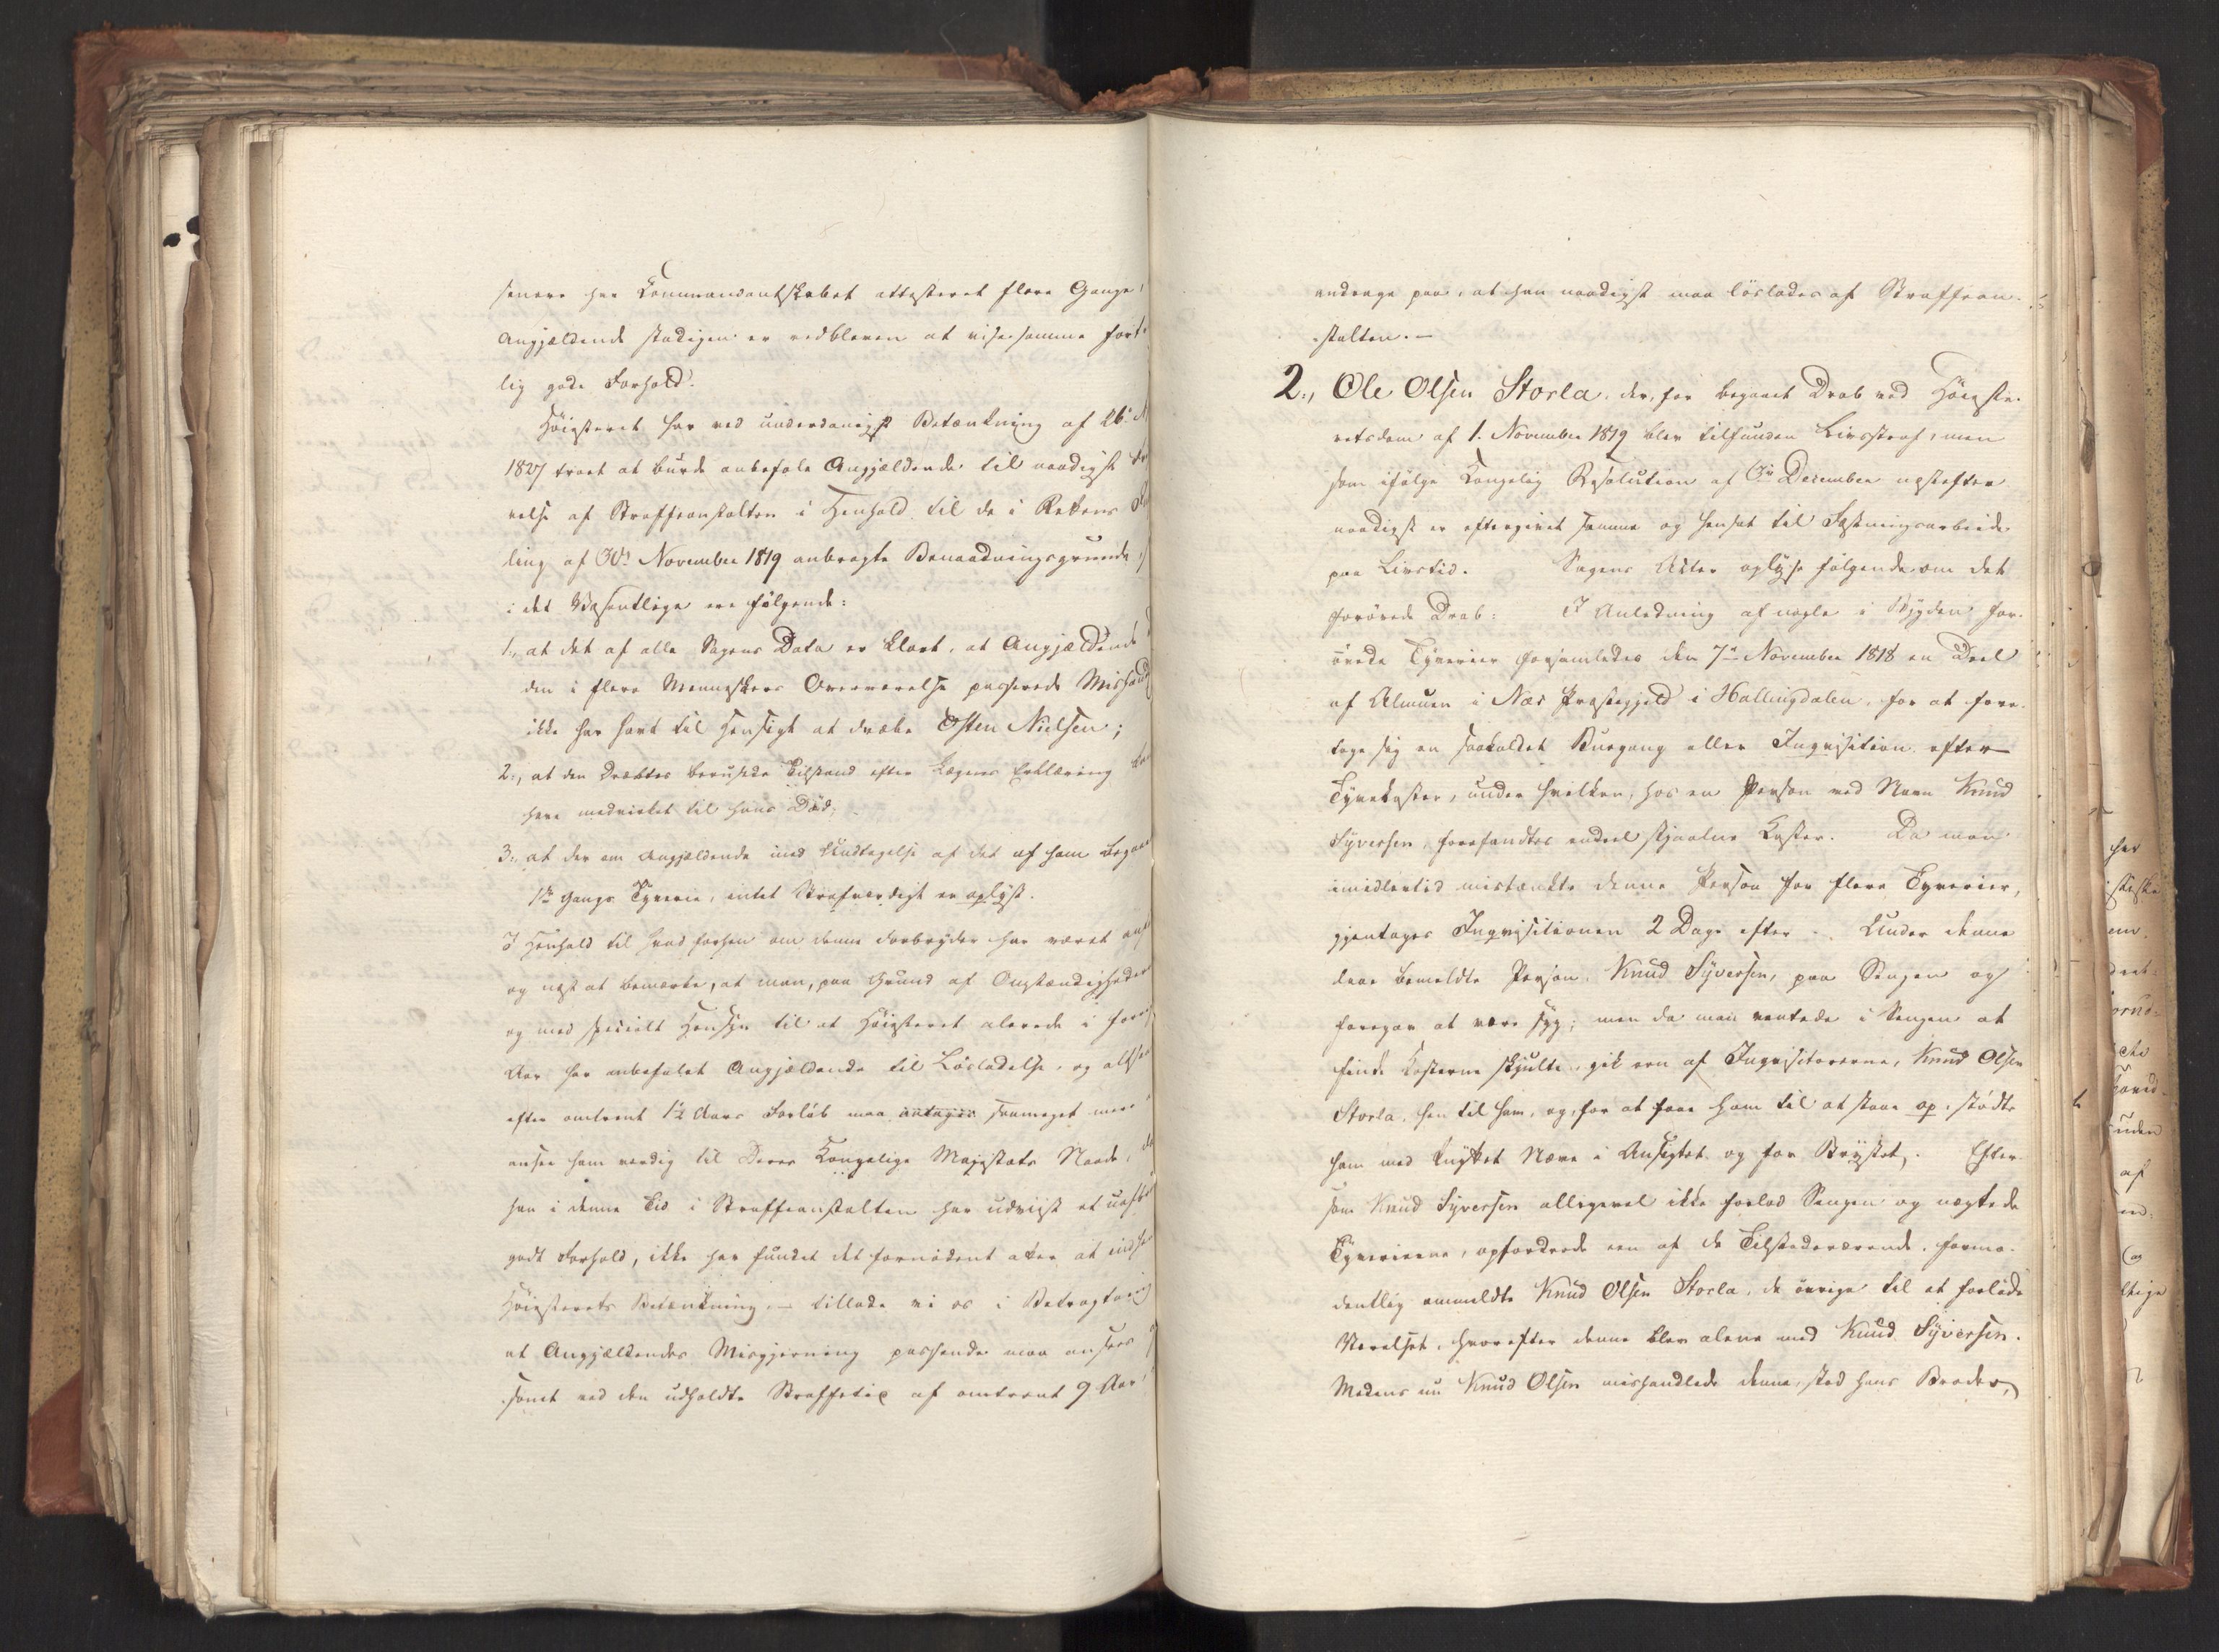 senere har Commandantskabet attesteret flere Gange,
Angjældende stadigen er vedbleven at vise samme fort-
lig gode Forhold.
Höiesteret har ved underdanigst Betænkning af 26
1827 troet at burde anbefale Angjældende til naadigst
velse af Straffeanstalten i Henhold til de i Rettens
ling af November 1819 anbragte Benaadningsgrunde,
i det Væsentlige ere fölgende:
1., at det af alle Sagens Data er klart, at Angjældende
den i flere Menneskers Overværelse passerede Mishand
ikke har havt til Hensigt at dræbe Osten Nielsen;
2., at den Dræbtes berusede Tilstand efter Lægens Erklæring
have medvirket til hans Död;
3., at der om Angjældende med Undtagelse af det af ham begaaede
1ste Gangs Tyverie, intet Strafværdigt er oplyst.
I Henhold til hvad forhen om denne Forbryder har været anf
og næst at bemærke, at man, paa Grund af Omstændigheder
og med specielt Hensyn til at Höiesteret allerede i forrige
Aar har anbefalet Angjældende til Lösladelse, og altsaa
efter omtrent 1½ Aars Forlöb maa antages saameget mere
ansee ham værdig til Deres Kongelige Majestæts Naade,
han i denne Tid i Straffeanstalten har udviist et
godt Forhold, ikke har fundet det fornödent atter at indhe
Höiesterets Betænkning, – tillade vi os i Betragtning
at Angjældendes Misgjerning passende maa ansees
sonet ved den udholdte Straffetid af omtrent 9 Aar,
andrage paa, at han naadigst maa löslades af Straffean-
stalten. –
2., Ole Olsen Storla, der, for begaaet Drab ved Höieste-
retsdom af 1. November 1819 blev tilfunden Livsstraf, men
som ifölge Kongelig Resolution af December næstefter
naadigst er eftergivet samme og hensat til Fæstningsarbeide
paa Livstid. Sagens Akter oplyse fölgende om det
forövede Drab: I Anledning af nogle i Bygden for-
övede Tyverier forsamledes den 7de November 1818 en Deel
af Almuen i Næs Præstegjeld i Hallingdalen, for at fore-
tage sig en saakaldet Buegang eller Inqvisition efter
Tyvekoster, under hvilken, hos en Person ved Navn Knud
Syversen, forefandtes endeel stjaalne Koster. Da man
imidlertid mistænkte denne Person for flere Tyverier,
gjentoges Inqvisitionen 2 Dage efter. Under denne
laae bemeldte Person, Knud Syversen, paa Sengen og
foregav at være syg; men da man ventede i Sengen at
finde Kosterne skjulte, gik een af Inqvisitorerne, Knud Olsen
Storla, hen til ham, og, for at faae ham til at staae op, stödte
ham med knyttet Næve i Ansigtet og for Brystet. Efter-
som Knud Syversen alligevel ikke forlod Sengen og nægtede
Tyverierne, opfordrede een af de Tilstedeværende, formo-
dentlig ommeldte Knud Olsen Storla, de övrige til at forlade
Værelset, hvorefter denne blev alene med Knud Syversen.
Medens nu Knud Olsen mishandlede denne, stod hans Broder,